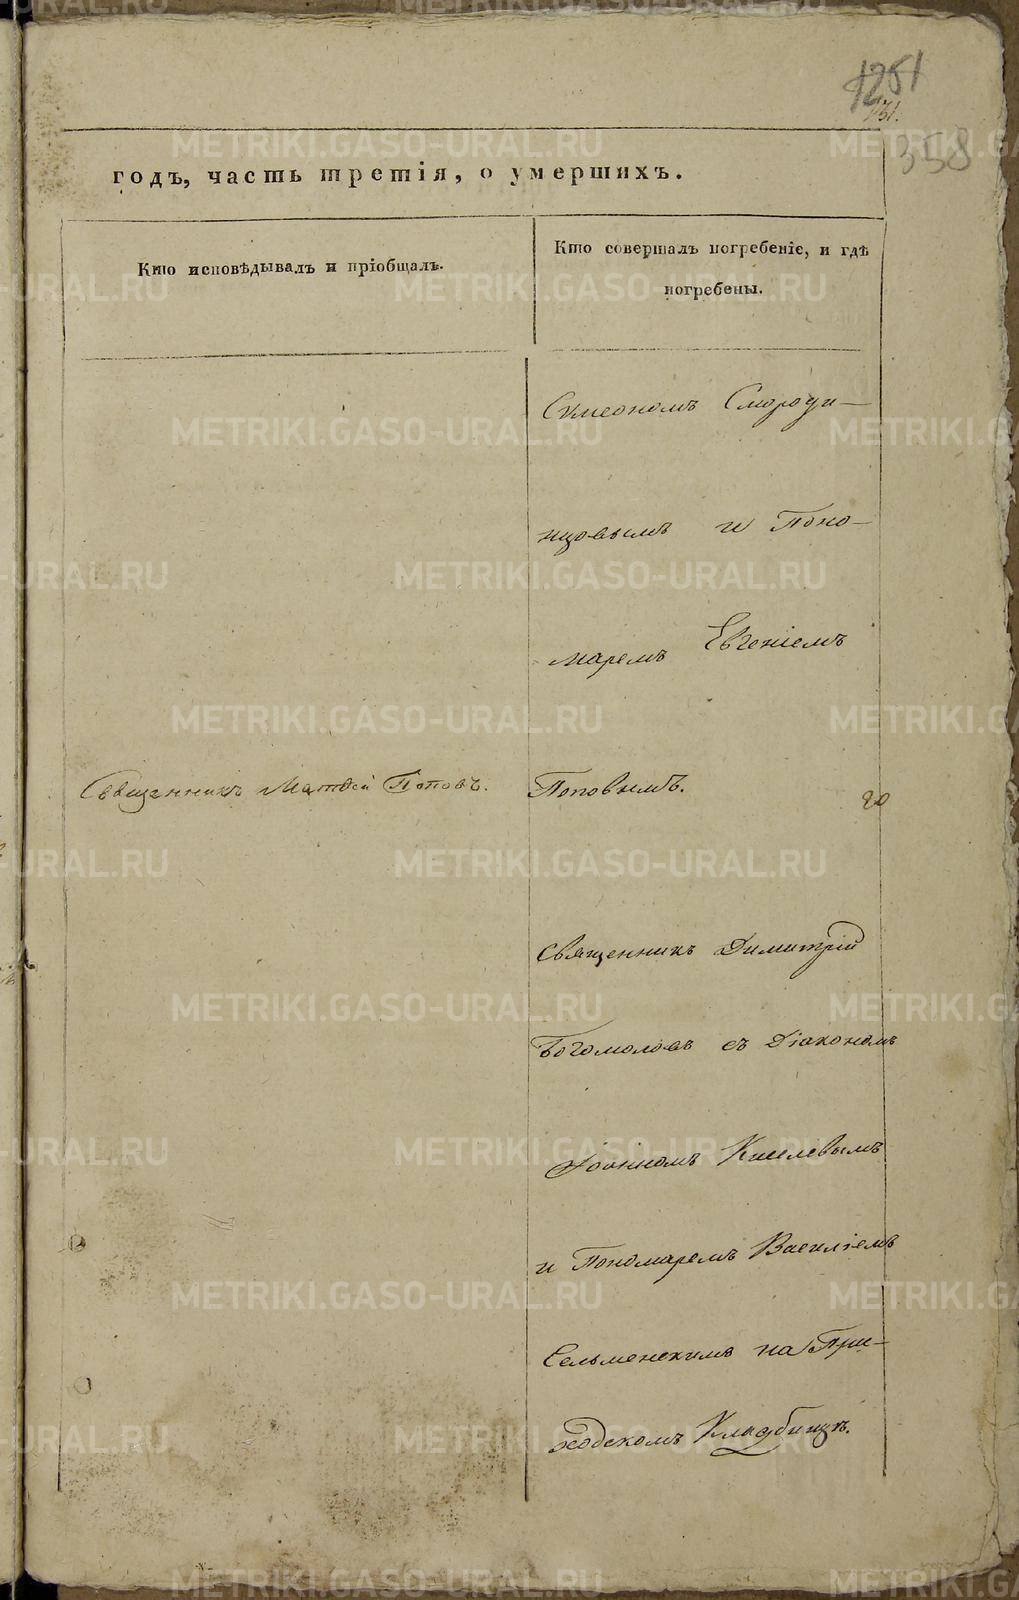 1251
131.
358
годъ, часть третія, о умершихъ.
Кто исповѣдывалъ и пріобщалъ.
Кто совершалъ погребеніе, и гдѣ
погребены.
Сѵмеономъ Смороди-
нцовымъ и Поно-
маремъ Евгеніемъ
Священникъ Матѳей Поповъ.
Поповымъ.
20
Священникъ Димитрій
Богомоловъ съ Діакономъ
Іоанномъ Киселевымъ
и Пономаремъ Василіемъ
Сельменскимъ на При-
ходскомъ Кладбищѣ.
METRIKI.GASO-URAL.RU